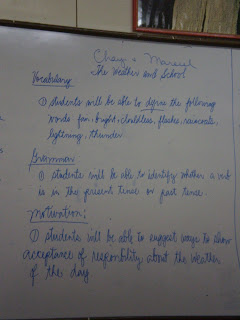 The Weather and School
Vocabulary
① students will be able to define the following
words fan, bright, cloudless, flashes, raincoats,
lightning, thunder.
Grammar
① students will be able to identify whether a verb
is in the present tense or past tense.
Motivation;
① students will be able to suggest ways to show
acceptance of responsibility about the weather
of the day.